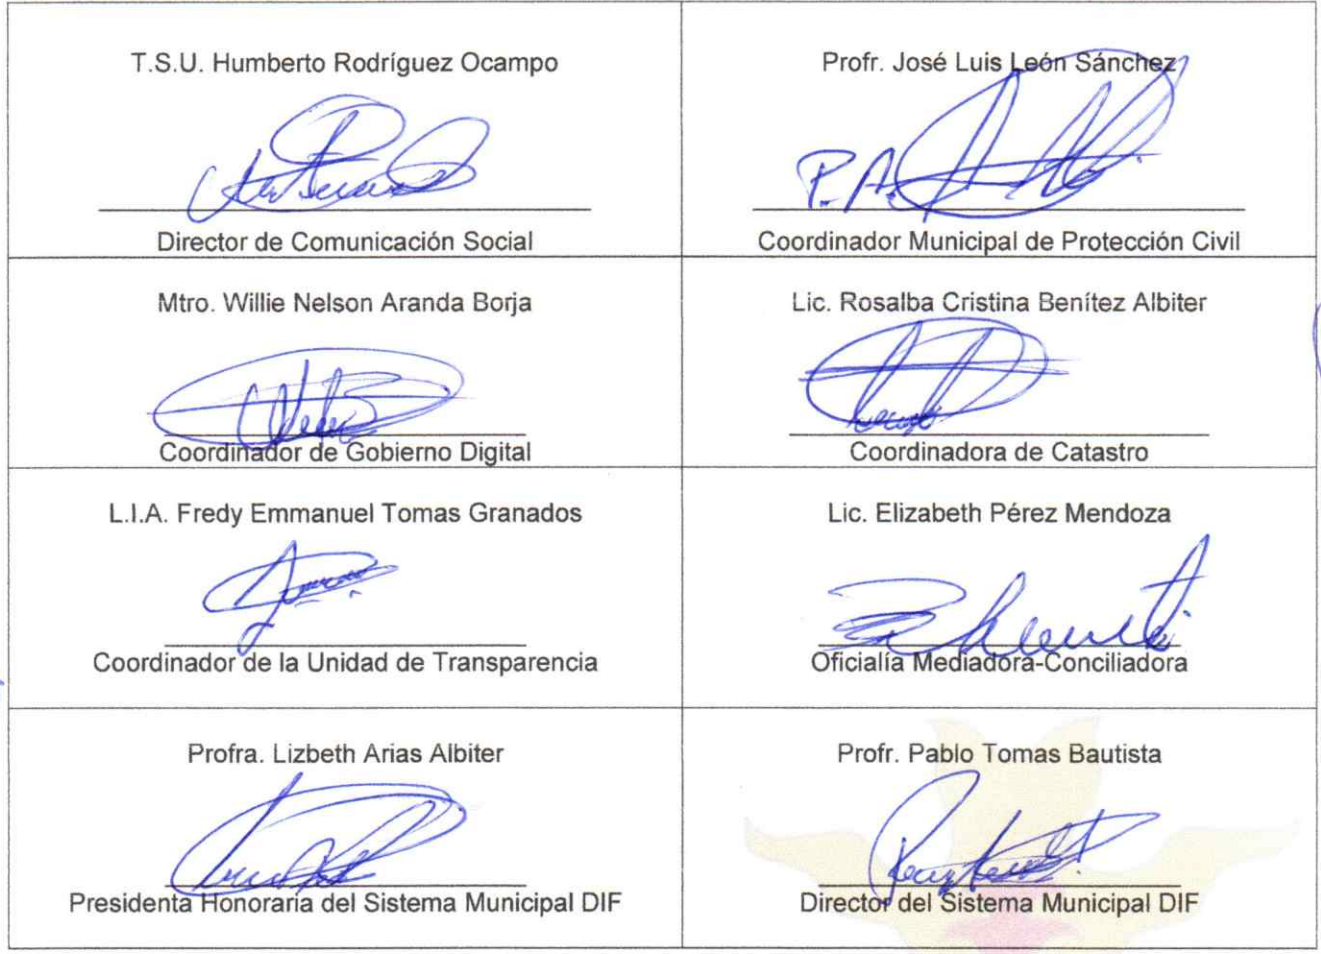 T.S.U. Humberto Rodríguez Ocampo
Director de Comunicación Social
Profr. José Luis León Sánchez
P.A.
Coordinador Municipal de Protección Civil
Mtro. Willie Nelson Aranda Borja
Coordinador de Gobierno Digital
Lic. Rosalba Cristina Benítez Albiter
Coordinadora de Catastro
L.I.A. Fredy Emmanuel Tomas Granados
Coordinador de la Unidad de Transparencia
Lic. Elizabeth Pérez Mendoza
Oficialía Mediadora-Conciliadora
Profra. Lizbeth Arias Albiter
Presidenta Honoraria del Sistema Municipal DIF
Profr. Pablo Tomas Bautista
Director del Sistema Municipal DIF